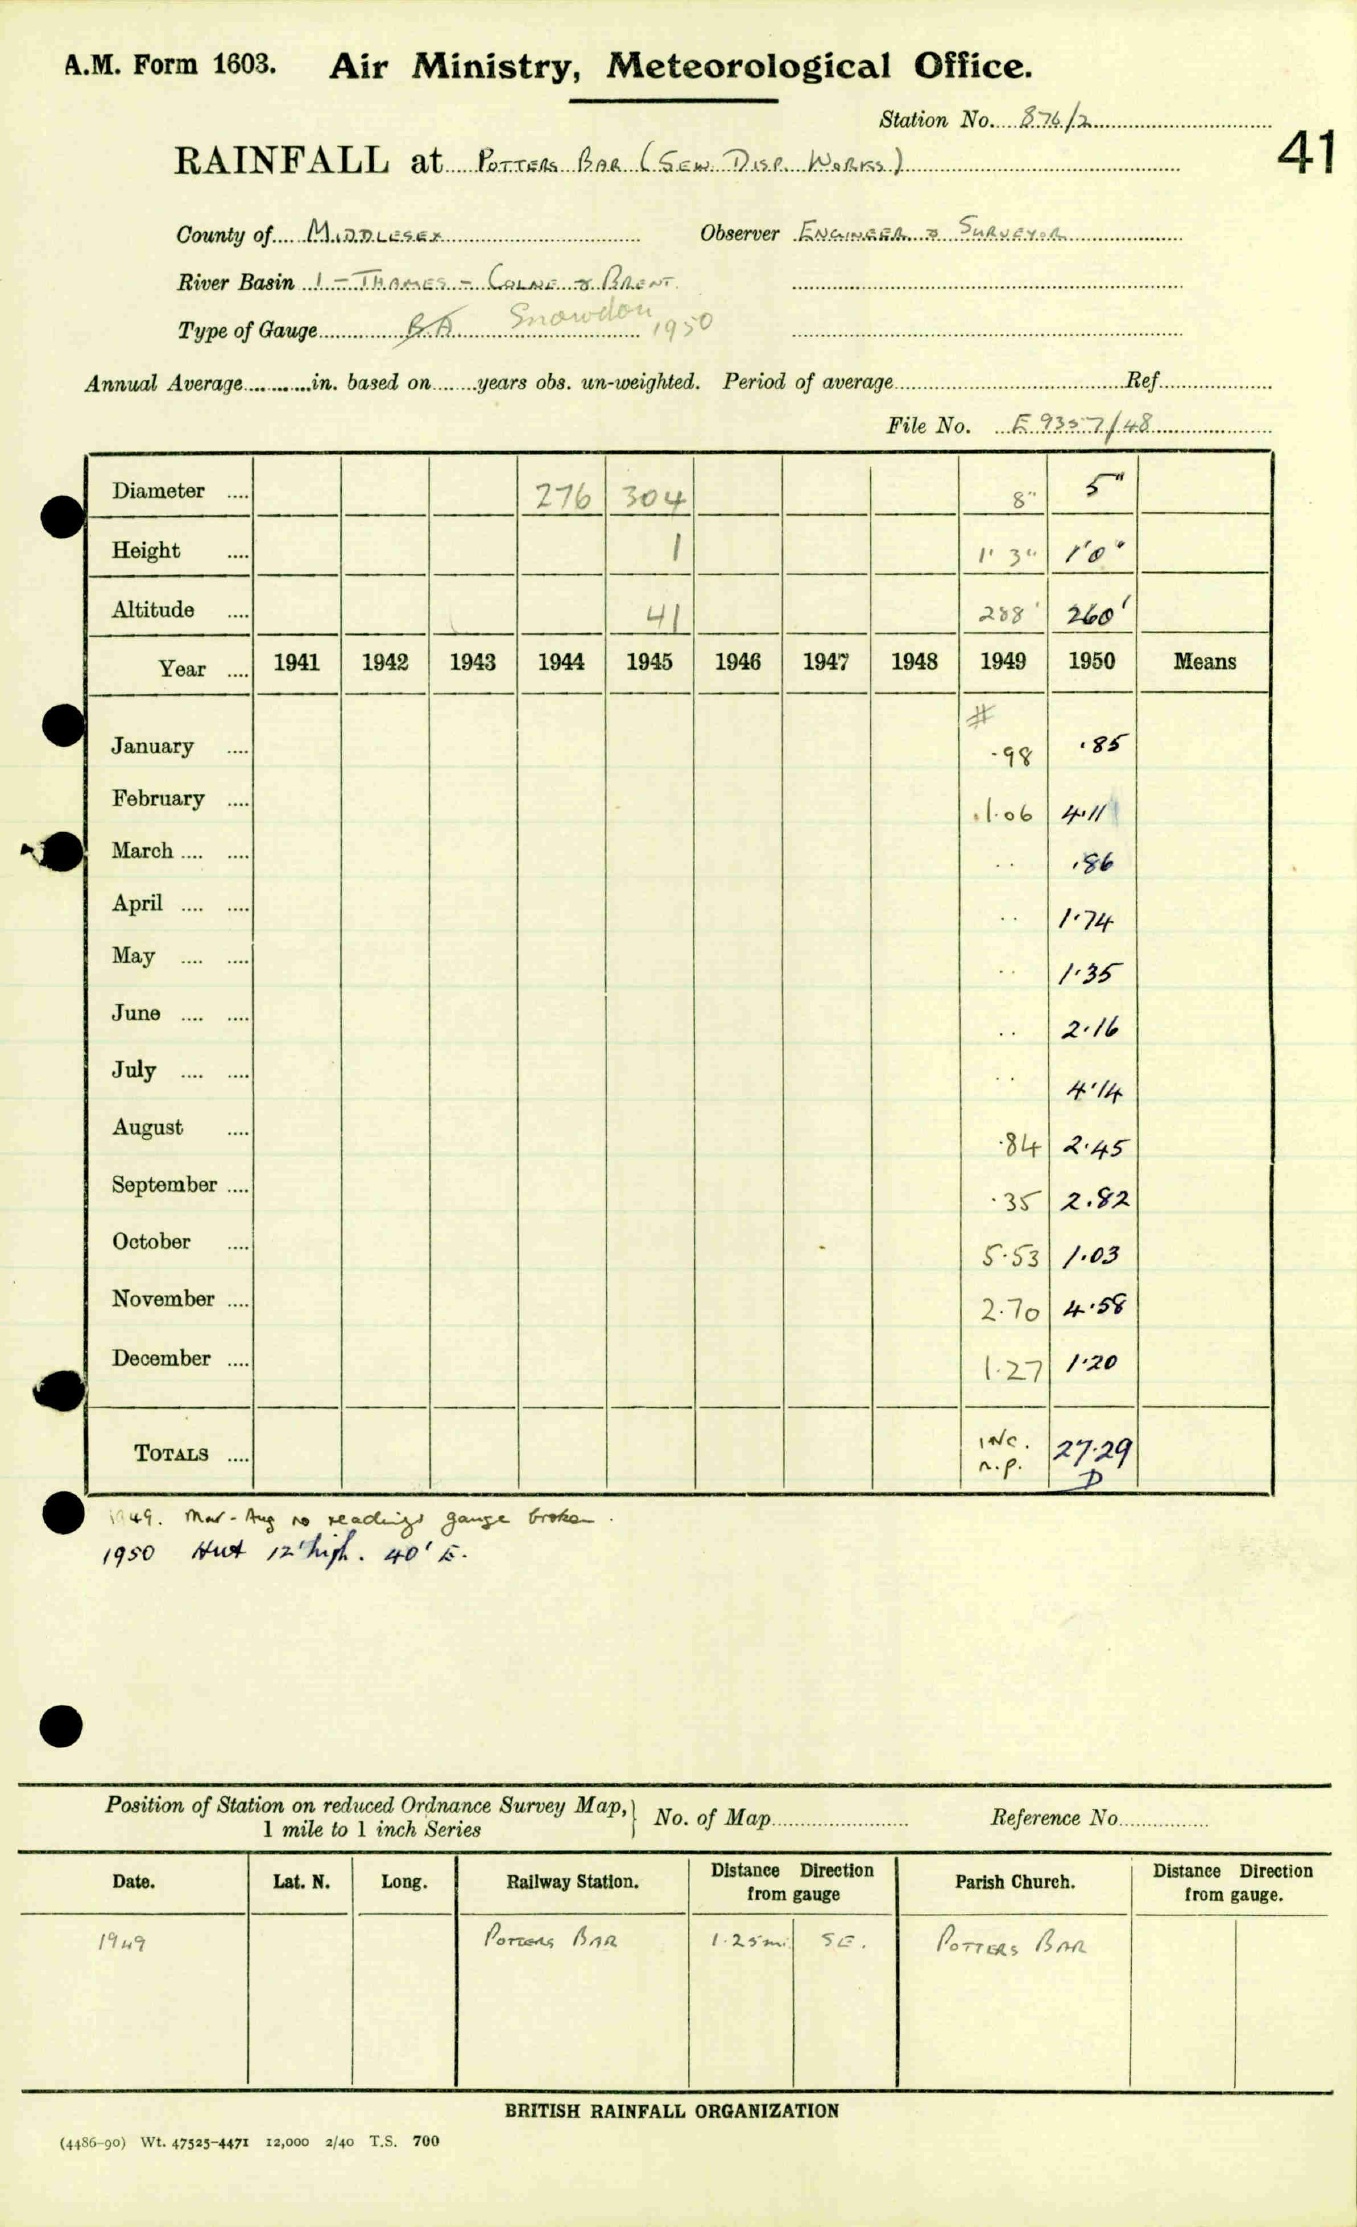 A.M. Form 1603. Air Ministry, Meteorological Office.
Station No. 876/2
41
RAINFALL at POTTERS BAR (SEW. DISP. WORKS)
County of MIDDLESEX Observer ENGINEER & SURVEYOR
River Basin 1 – THAMES – COLNE & BRENT.
Type of Gauge BA Snowdon 1950
Annual Average in. based on years obs. un-weighted. Period of average Ref
File No. E 9357/48
Diameter 276 304 8" 5"
Height 1 1' 3" 1'0"
Altitude 41 288' 260'
Year 1941 1942 1943 1944 1945 1946 1947 1948 1949 1950 Means
#
January ·98 ·85
February 1·06 4·11
March .. ·86
April .. 1·74
May .. 1·35
June .. 2·16
July .. 4·14
August ·84 2·45
September ·35 2·82
October 5·53 1·03
November 2·70 4·58
December 1·27 1·20
TOTALS inc. n.p. 27·29
D
1949. Mar - Aug no readings gauge broken.
1950 Hut 12' high. 40' E.
Position of Station on reduced Ordnance Survey Map,} No. of Map Reference No
1 mile to 1 inch Series
Date. Lat. N. Long. Railway Station. Distance Direction from gauge Parish Church. Distance Direction from gauge.
1949 POTTERS BAR 1·25 mi SE. POTTERS BAR
BRITISH RAINFALL ORGANIZATION
(4486-90) Wt. 47525-4471 12,000 2/40 T.S. 700